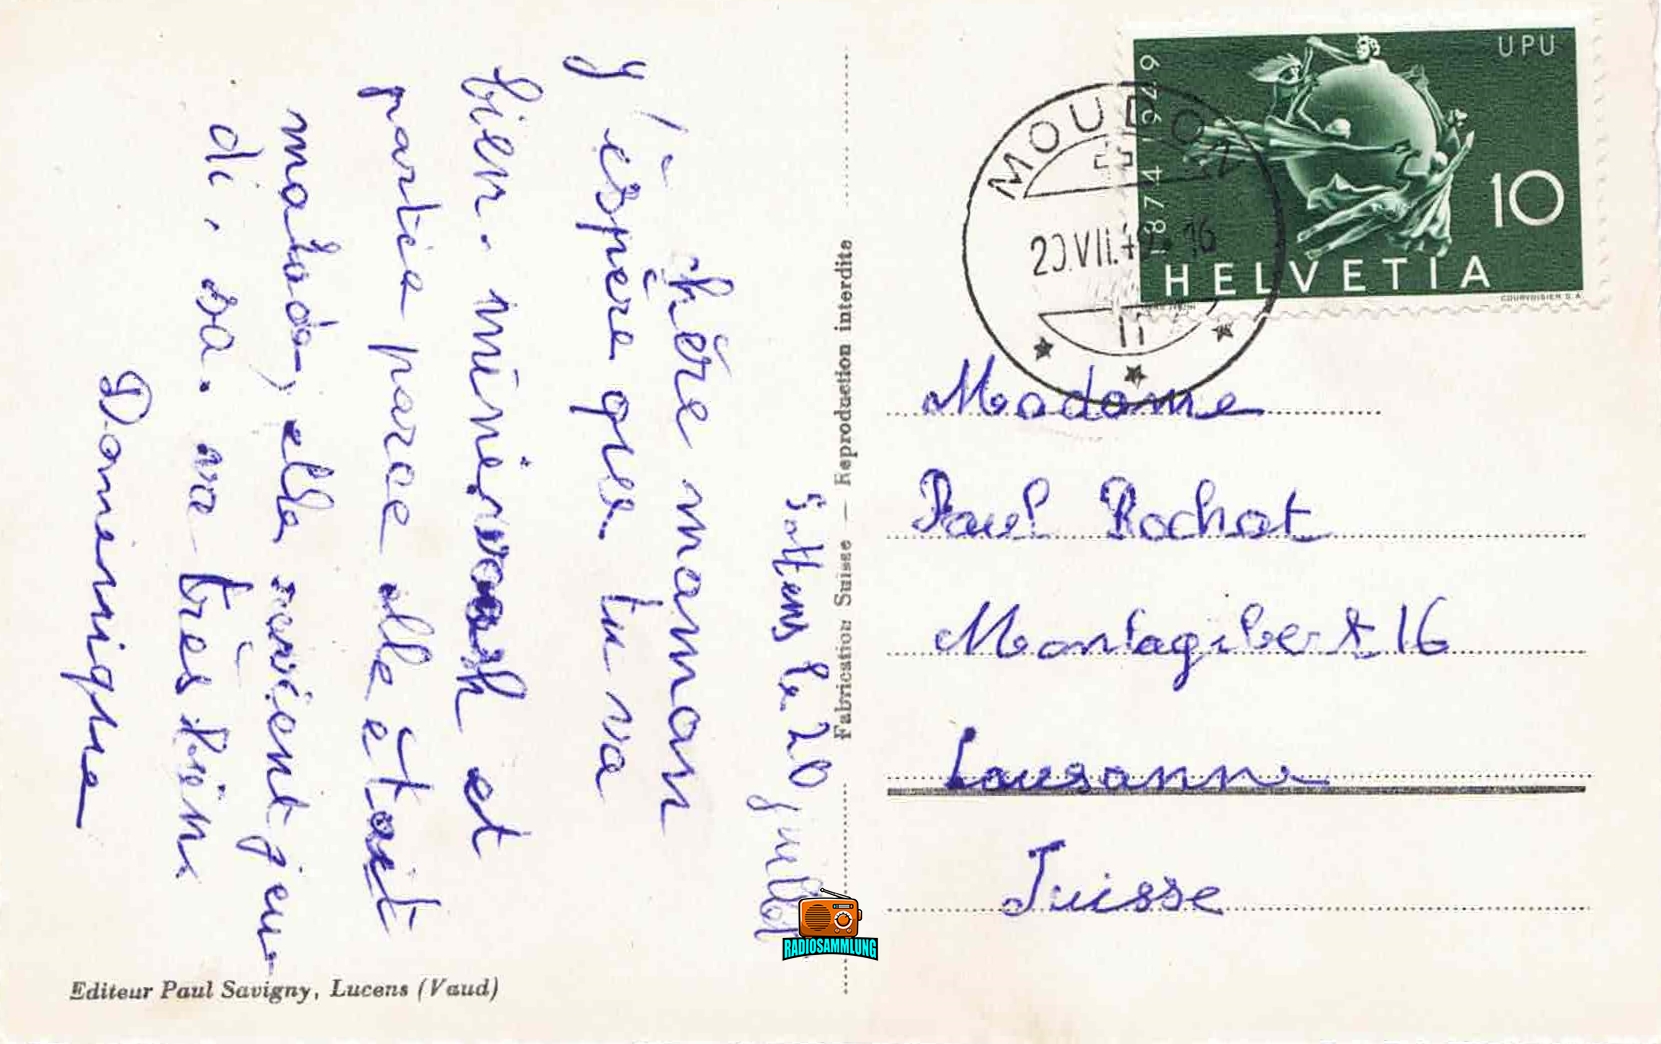 Sottens le 20 juillet
Chère maman
J'éspère que tu va
bien. minir et
partie parce elle était
malade, elle revient jeu-
di, sa. va très bien
Dominique
Editeur Paul Savigny, Lucens (Vaud)
Fabrication Suisse — Reproduction interdite
UPU
1874 1949
10
HELVETIA
COURVOISIER S.A.
MOUDON
20.VII.49-16
Madame
Paul Rochat
Montagibert 16
Lausanne
Suisse
RADIOSAMMLUNG